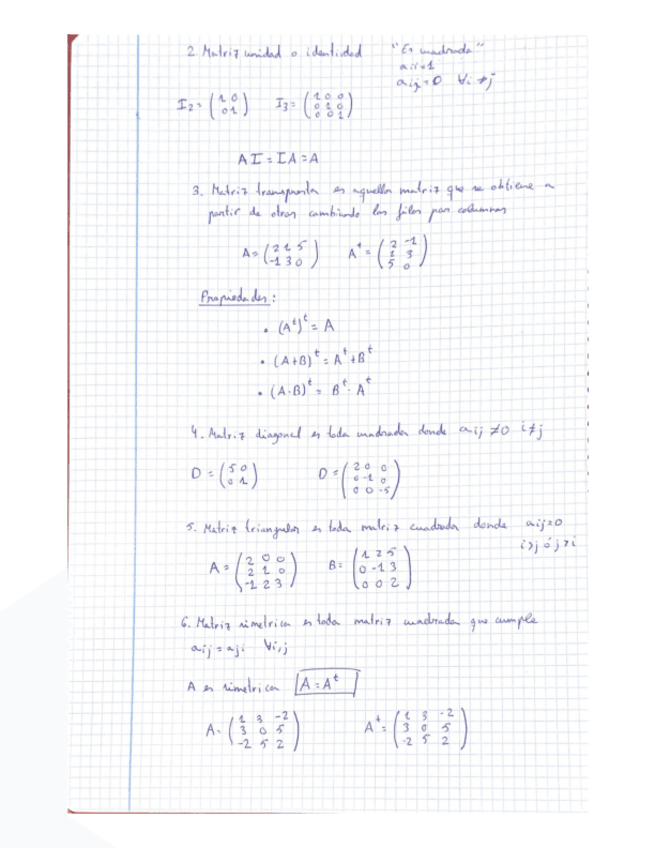 2. Matriz unidad o identidad "Es cuadrada"
aii=1
aij=0 ∀i≠j
I2=(1 0
0 1) I3=(1 0 0
0 1 0
0 0 1)
AI=IA=A
3. Matriz transpuesta es aquella matriz que se obtiene a
partir de otras cambiando las filas por columnas
A=(2 1 5
-1 3 0) A^t=(2 -1
1 3
5 0)
Propiedades:
• (A^t)^t=A
• (A+B)^t=A^t+B^t
• (A·B)^t=B^t·A^t
4. Matriz diagonal es toda cuadrada donde aij≠0 i≠j
D=(5 0
0 1) D=(2 0 0
0 -1 0
0 0 -5)
5. Matriz triangular es toda matriz cuadrada donde aij=0
i>j ó j>i
A=(2 0 0
2 1 0
-1 2 3) B=(1 2 5
0 -1 3
0 0 2)
6. Matriz simetrica es toda matriz cuadrada que cumple
aij=aji ∀i,j
A es simetrica A=A^t
A=(1 3 -2
3 0 5
-2 5 2) A^t=(1 3 -2
3 0 5
-2 5 2)